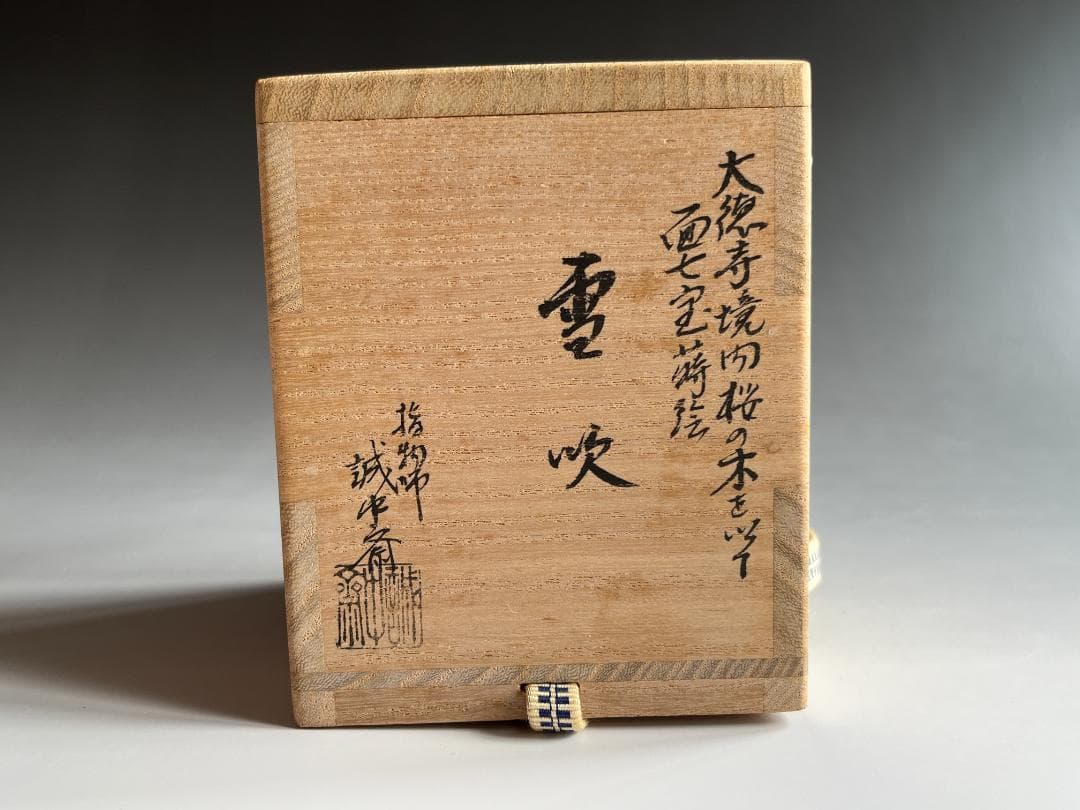 大徳寺境内桜の木を以て
面七宝蒔絵
雪吹
指物師
誠中斎
誠中斎